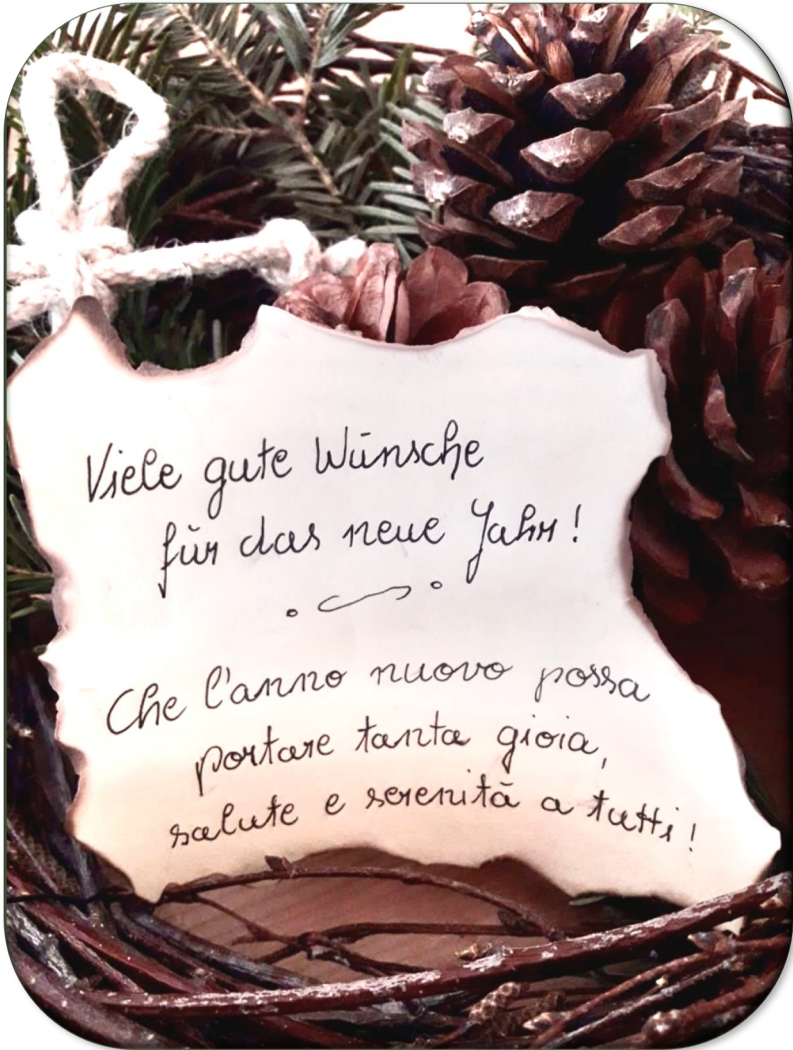 Viele gute Wünsche
für das neue Jahr!
Che l'anno nuovo possa
portare tanta gioia,
salute e serenità a tutti!